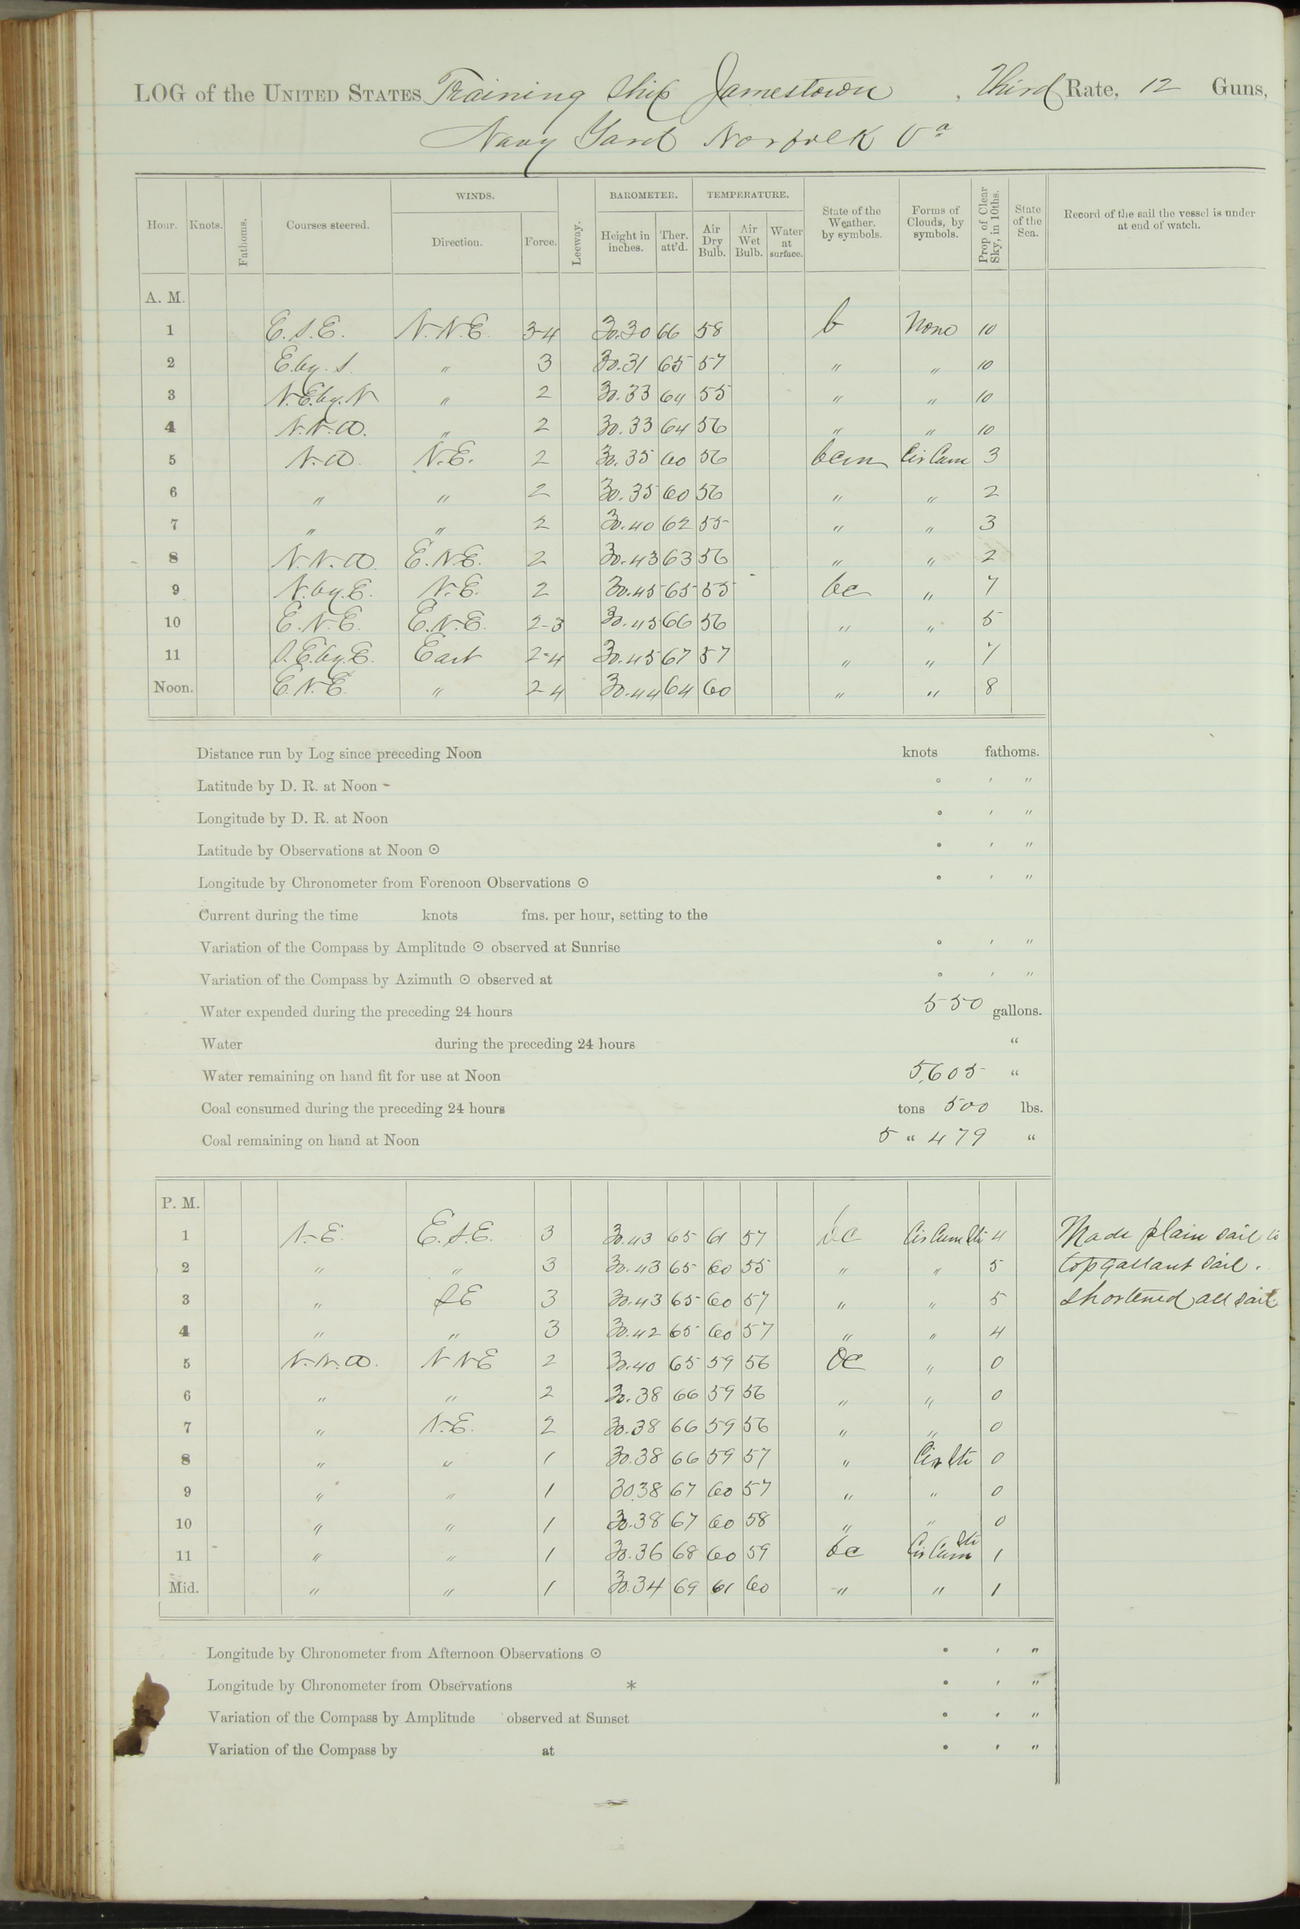 LOG of the UNITED STATES Training Ship Jamestown, Third Rate, 12 Guns,
Navy Yard Norfolk Va
Hour. Knots. Fathoms. Courses steered. WINDS. Direction. Force. Leeway. BAROMETER. Height in inches. Ther. att'd. TEMPERATURE. Air Dry Bulb. Air Wet Bulb. Water at surface. State of the Weather. by symbols. Forms of Clouds, by symbols. Prop. of Clear Sky, in 10ths. State of the Sea. Record of the sail the vessel is under at end of watch.
A. M.
1 E.S.E. N.N.E. 3-4 30.30 66 58 b None 10
2 E.by.S. " 3 30.31 65 57 " " 10
3 N.E.by.N " 2 30.33 64 55 " " 10
4 N.N.W. " 2 30.33 64 56 " " 10
5 N.W. N.E. 2 30.35 60 56 bcm Cir Cum 3
6 " " 2 30.35 60 56 " " 2
7 " " 2 30.40 62 55 " " 3
8 N.N.W. E.N.E. 2 30.43 63 56 " " 2
9 N.by.E. N.E. 2 30.45 65 55 bc " 7
10 E.N.E. E.N.E. 2-3 30.45 66 56 " " 5
11 S.E.by.E. East 2-4 30.45 67 57 " " 7
Noon. E.N.E. " 2-4 30.44 64 60 " " 8
Distance run by Log since preceding Noon knots fathoms.
Latitude by D. R. at Noon - ° ′ ″
Longitude by D. R. at Noon ° ′ ″
Latitude by Observations at Noon ☉ ° ′ ″
Longitude by Chronometer from Forenoon Observations ☉ ° ′ ″
Current during the time knots fms. per hour, setting to the
Variation of the Compass by Amplitude ☉ observed at Sunrise ° ′ ″
Variation of the Compass by Azimuth ☉ observed at ° ′ ″
Water expended during the preceding 24 hours 550 gallons.
Water during the preceding 24 hours "
Water remaining on hand fit for use at Noon 5,605 "
Coal consumed during the preceding 24 hours tons 500 lbs.
Coal remaining on hand at Noon 5 " 479 "
P. M.
1 N.E. E.S.E. 3 30.43 65 61 57 bc Cir Cum Str 4 Made plain sail to
2 " " 3 30.43 65 60 55 " " 5 topgallant sail.
3 " SE 3 30.43 65 60 57 " " 5 Shortened all sail
4 " " 3 30.42 65 60 57 " " 4
5 N.N.W. N N E 2 30.40 65 59 56 oc " 0
6 " " 2 30.38 66 59 56 " " 0
7 " N.E. 2 30.38 66 59 56 " " 0
8 " " 1 30.38 66 59 57 " Cir Str 0
9 " " 1 30.38 67 60 57 " " 0
10 " " 1 30.38 67 60 58 " " 0
11 " " 1 30.36 68 60 59 bc Cir Cum Str 1
Mid. " " 1 30.34 69 61 60 " " 1
Longitude by Chronometer from Afternoon Observations ☉ ° ′ ″
Longitude by Chronometer from Observations * ° ′ ″
Variation of the Compass by Amplitude observed at Sunset ° ′ ″
Variation of the Compass by at ° ′ ″